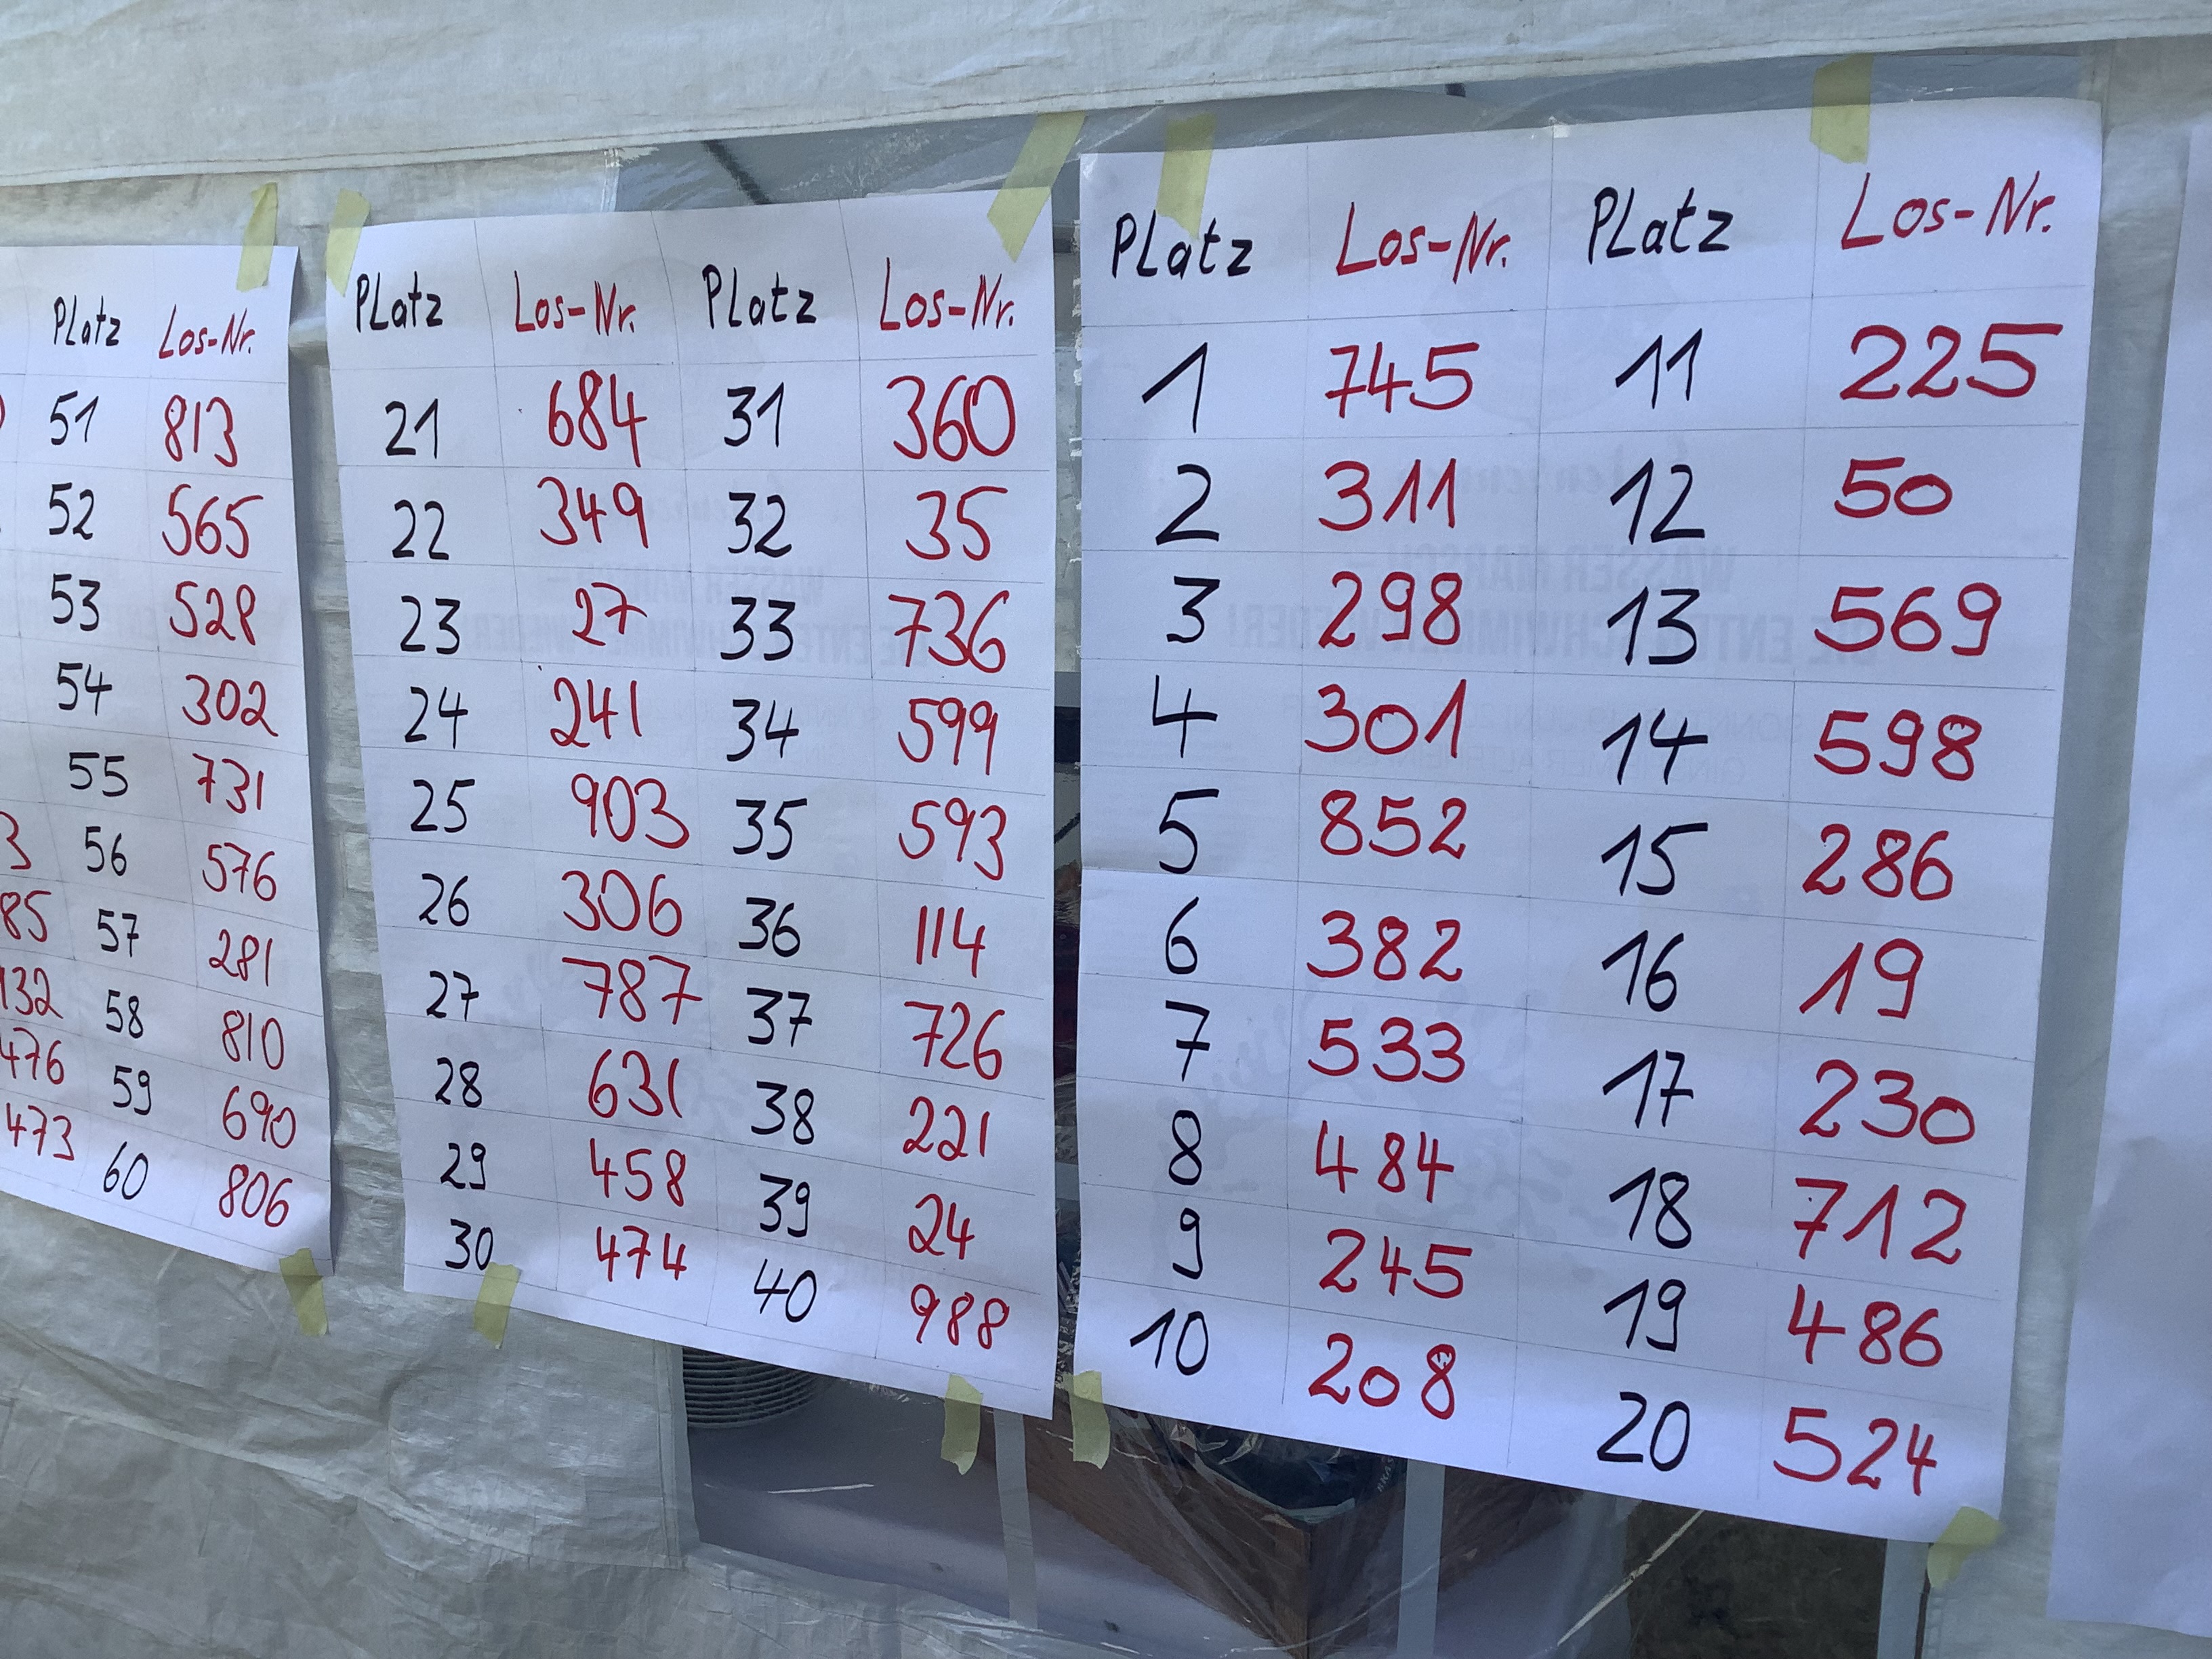 Platz Los-Nr.
51 813
52 565
53 528
54 302
55 731
3 56 576
85 57 281
132 58 810
476 59 690
473 60 806
Platz Los-Nr. Platz Los-Nr.
21 684 31 360
22 349 32 35
23 27 33 736
24 241 34 599
25 903 35 593
26 306 36 114
27 787 37 726
28 631 38 221
29 458 39 24
30 474 40 988
Platz Los-Nr. Platz Los-Nr.
1 745 11 225
2 311 12 50
3 298 13 569
4 301 14 598
5 852 15 286
6 382 16 19
7 533 17 230
8 484 18 712
9 245 19 486
10 208 20 524